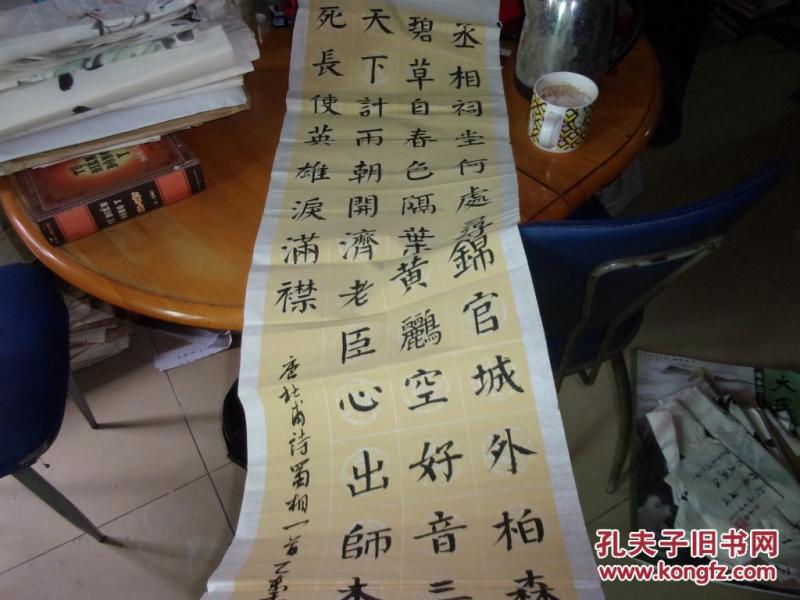 丞相祠堂何處尋錦官城外柏森
碧草自春色隔葉黄鸝空好音三
天下計兩朝開濟老臣心出師未
死長使英雄淚滿襟
唐杜甫詩蜀相一首乙
孔夫子旧书网
www.kongfz.com